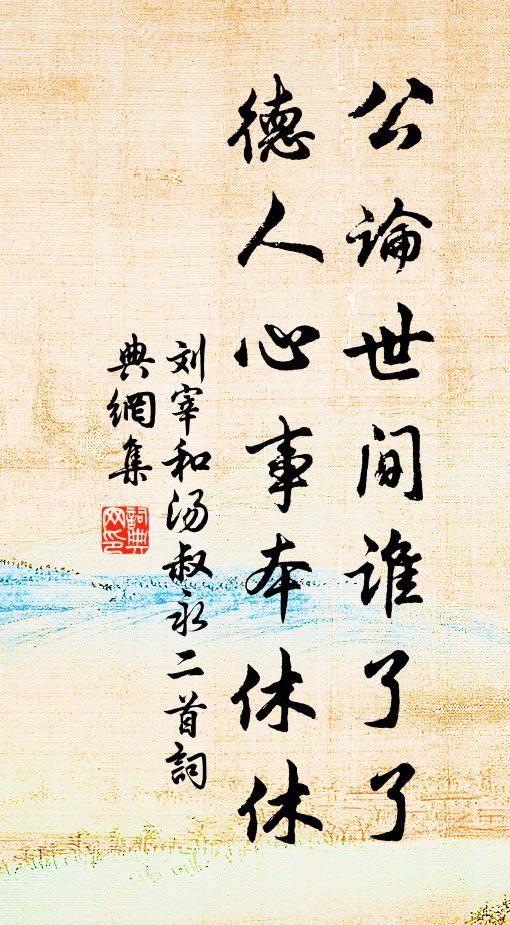 公論世間誰了了
德人心事本休休
刘宰和汤叔永二首詞
典網集
詞典
网印